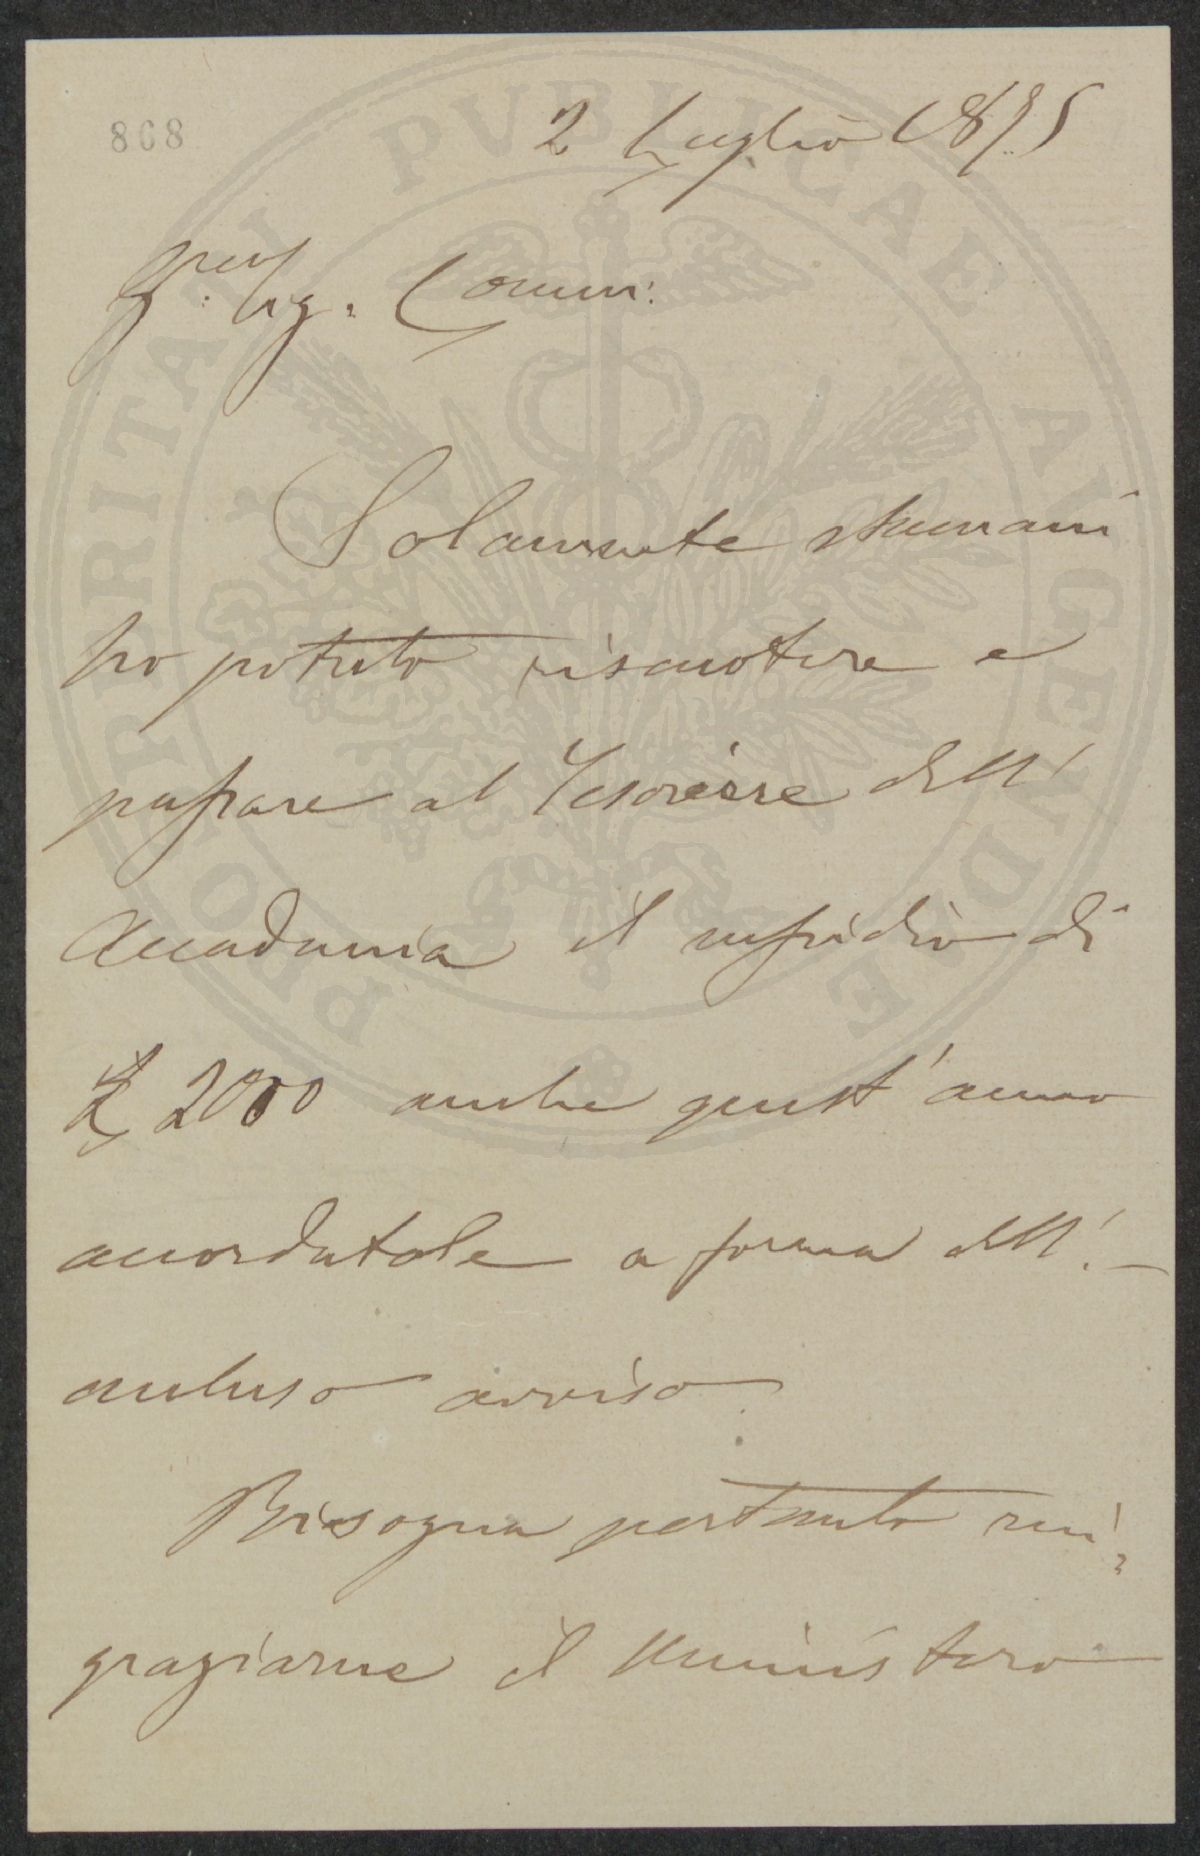 868
2 Luglio 1895
Sig. Comm:
Solamente stamani
ho potuto riscuotere e
passare al Tesoriere dell'
Accademia il sussidio di
£ 2000 anche quest'anno
accordatole a forma dell'
accluso avviso.
Bisogna pertanto rin-
graziarne il Ministero
PROSPERITATI PVBLICAE AVGENDAE